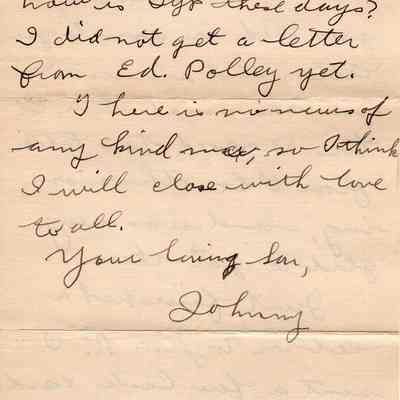 how is Syp these days?
I did not get a letter
from Ed. Polley yet.
There is no news of
any kind now, so I think
I will close with love
to all.
Your loving Son,
Johnny